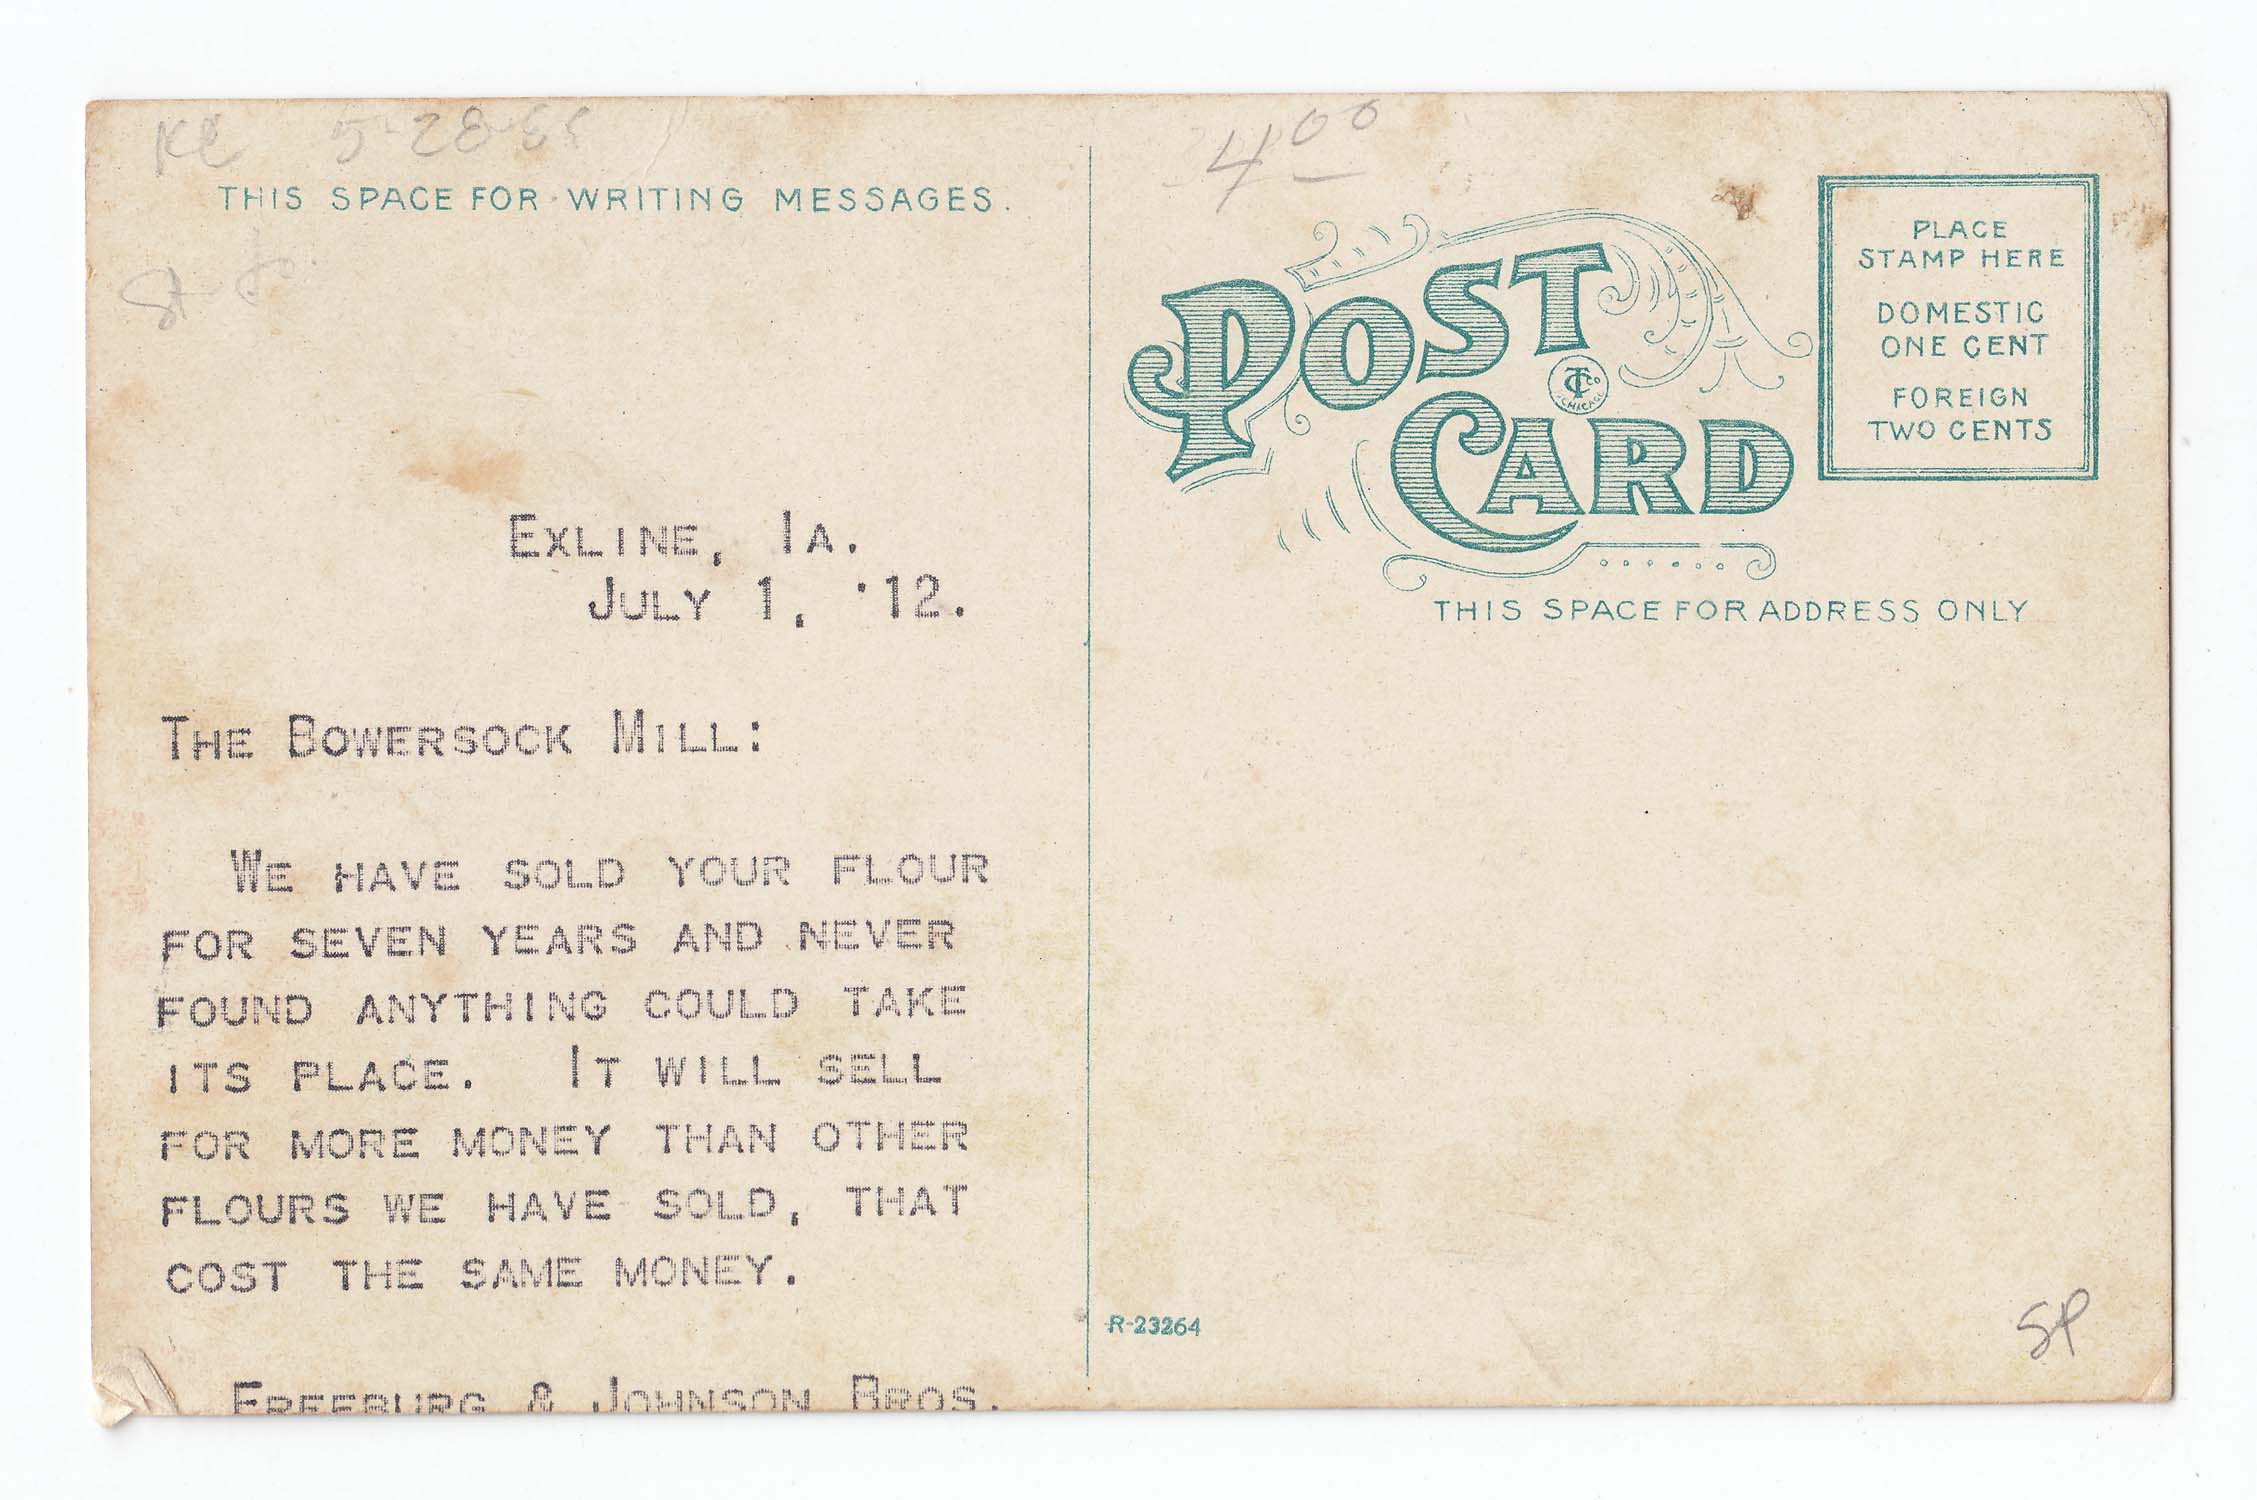 THIS SPACE FOR WRITING MESSAGES.
Exline, Ia.
July 1, '12.
The Bowersock Mill:
We have sold your flour
for seven years and never
found anything could take
its place. It will sell
for more money than other
flours we have sold, that
cost the same money.
Freeburg & Johnson Bros.
4 00
POST
CARD
PLACE
STAMP HERE
DOMESTIC
ONE CENT
FOREIGN
TWO CENTS
THIS SPACE FOR ADDRESS ONLY
R-23264